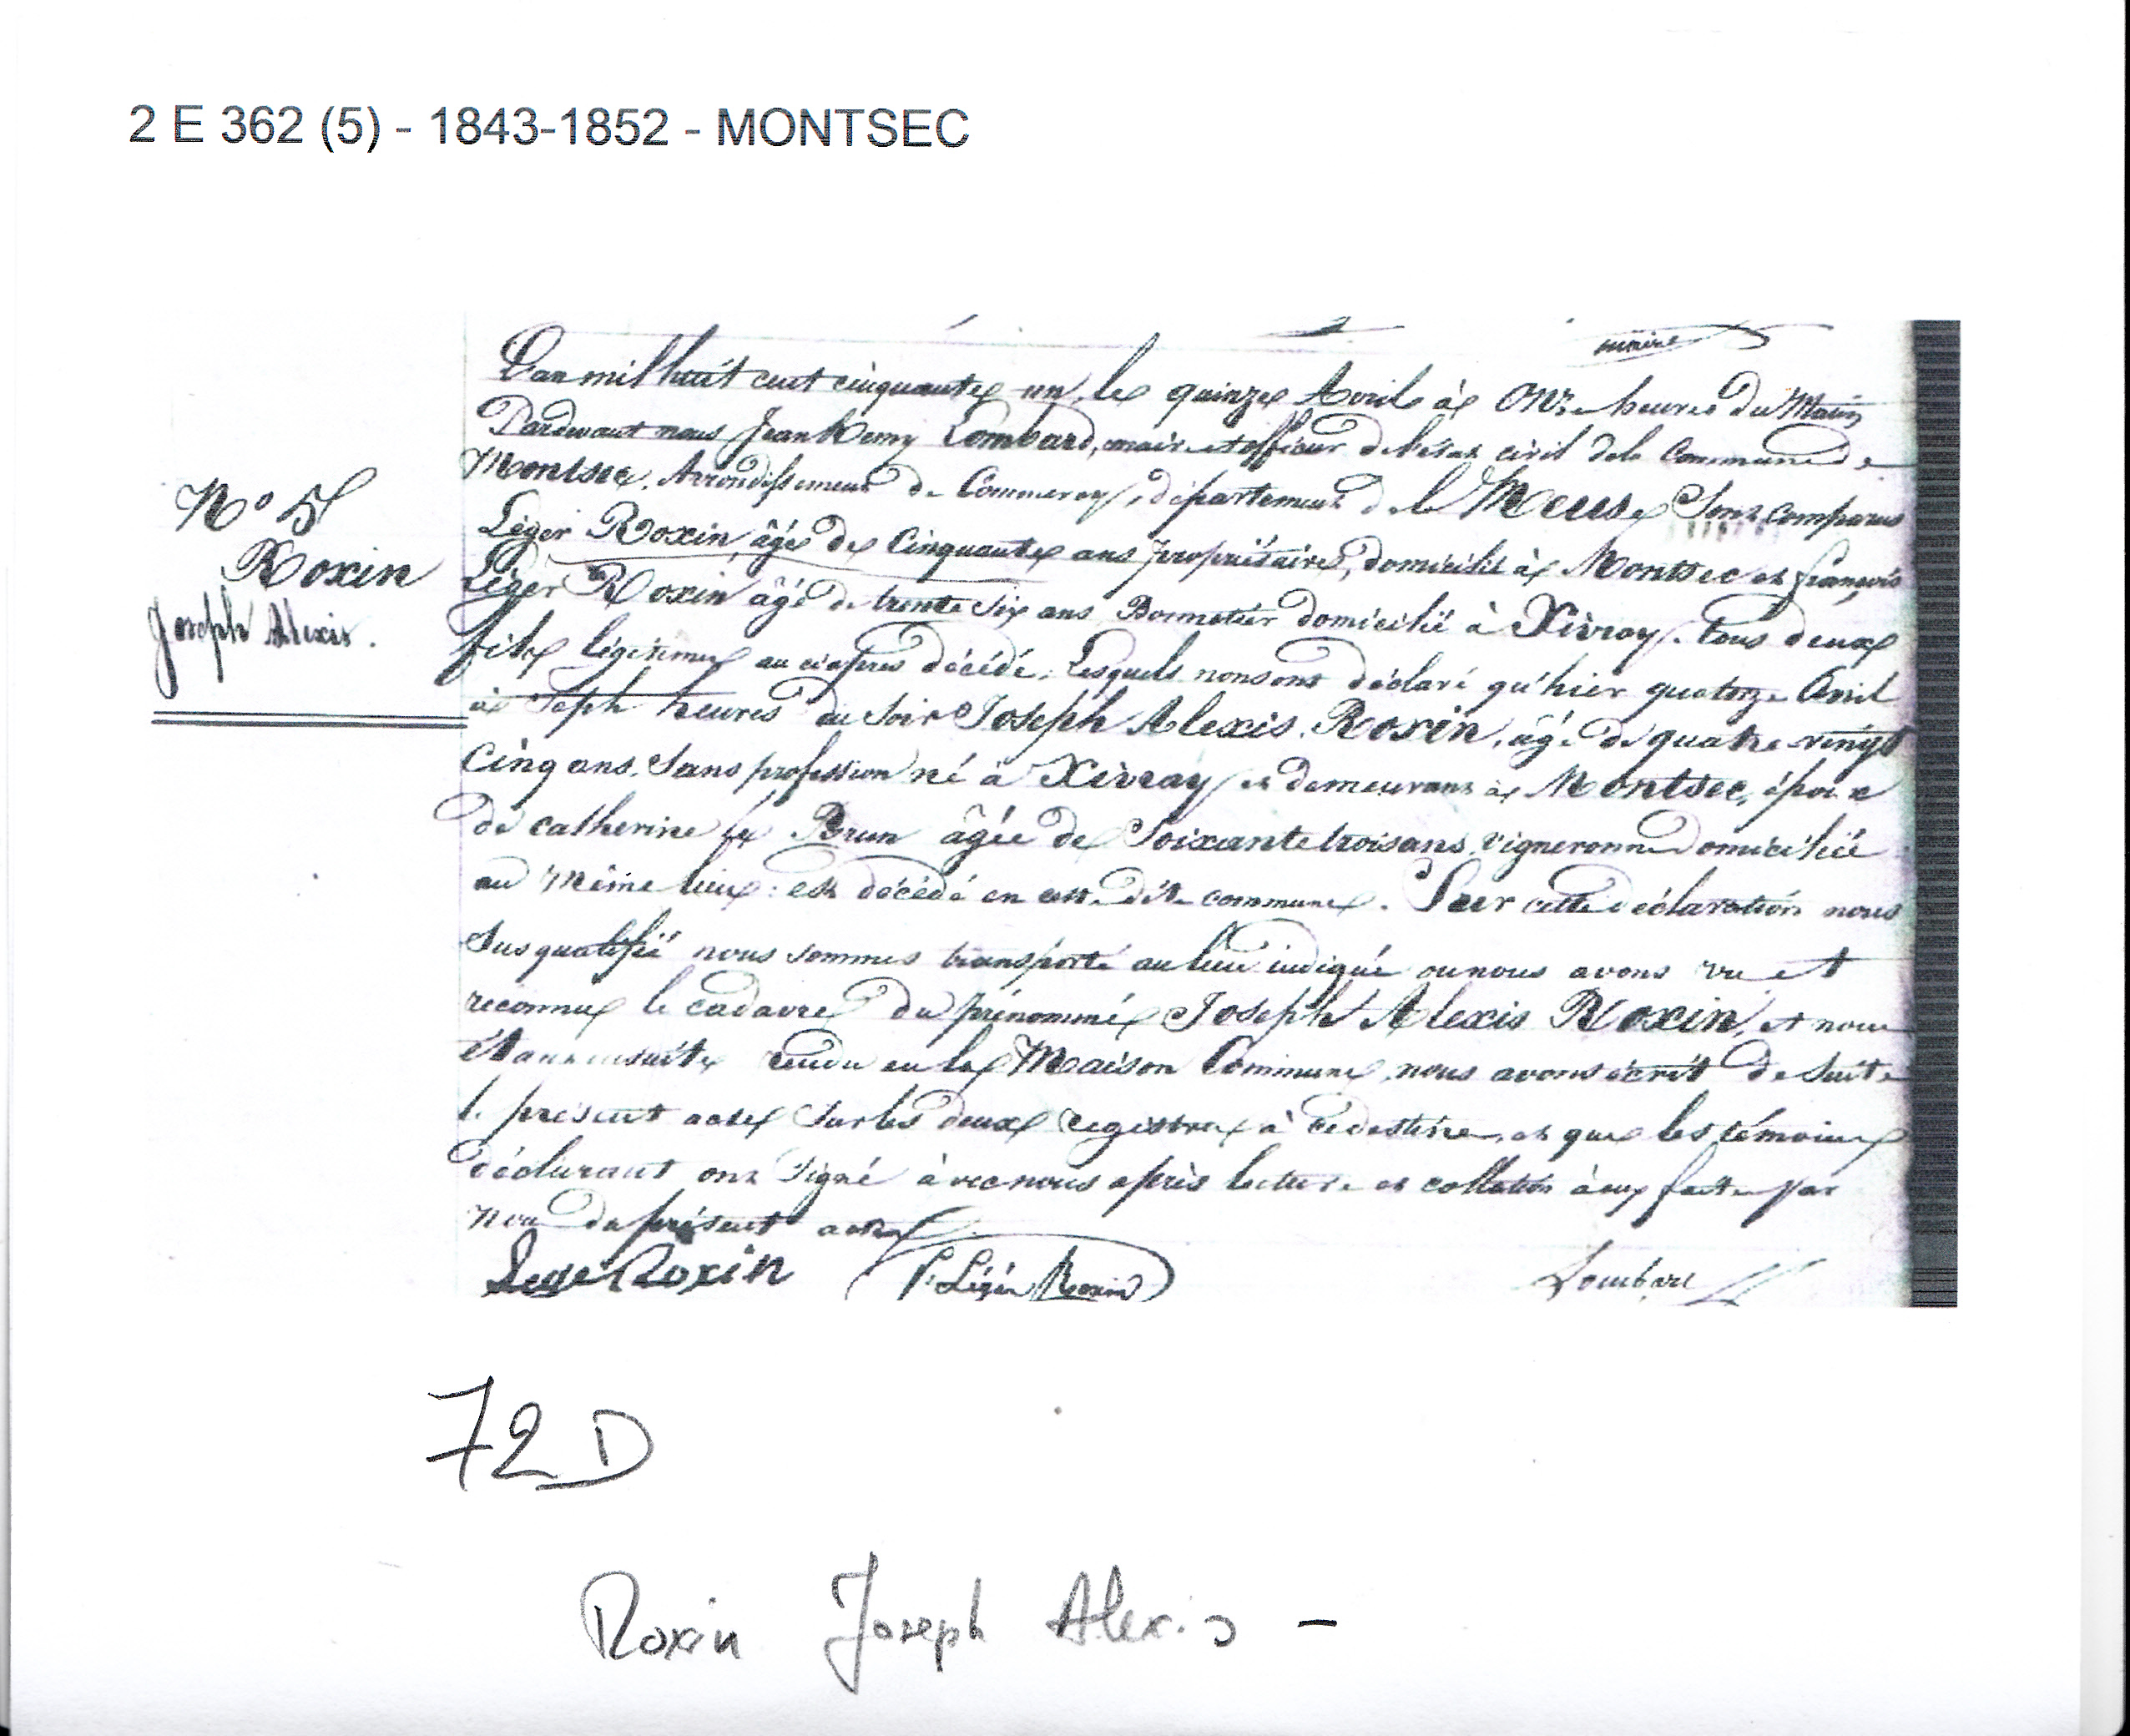 2 E 362 (5) - 1843-1852 - MONTSEC
maire
L'an mil huit cent cinquante un, le quinze Avril à Onze heures du Matin
Pardevant nous Jean Remy Lombard, maire et officier de l'état civil de la Commune de
Montsec, Arrondissement de Commercy, département de la Meuse Sont comparus
Léger Roxin, âgé de Cinquante ans propriétaire, domicilié à Montsec et françois
Léger Roxin âgé de trente six ans Bonnetier domicilié à Xivray. tous deux
fils légitimes au ciaprès décédé. Lesquels nousont déclaré qu'hier quatorze Avril
à Seph heures du Soir Joseph Alexis Roxin, âgé de quatre vingt
Cinq ans, Sans profession né à Xivray et demeurant à Montsec, époux
de Catherine le Brun âgée de Soixante trois ans, Vigneronne Domiciliée
au Même lieu : est décédé en cette dite commune. Sur cette déclaration nous
Susqualifié nous sommes transporté au lieu indiqué ou nous avons vu et
reconnu le cadavre du prénommé Joseph Alexis Roxin, et nous
étant ensuite rendu en la Maison Commune, nous avons écrit de Suite
le présent acte Sur les deux registres à ce destiné, et que les témoins
déclarant ont Signé avec nous après lecture et collation à eux faite par
nous du présent acte
Lege Roxin F: Léger Roxin Lombard
N° 5
Roxin
Joseph Alexis.
72 D
Roxin Joseph Alexis -